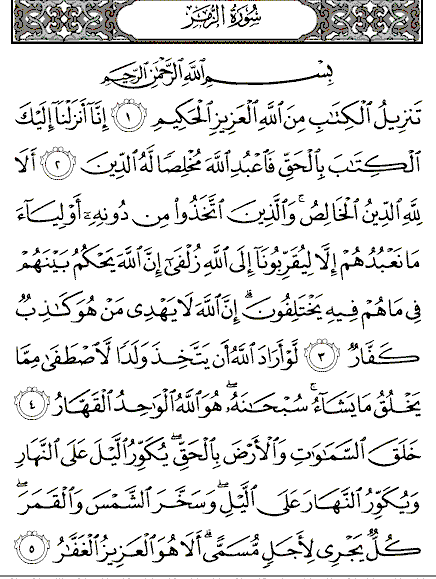 سُورَةُ الزُّمَرِ
بِسْمِ اللَّهِ الرَّحْمَٰنِ الرَّحِيمِ
تَنزِيلُ الْكِتَابِ مِنَ اللَّهِ الْعَزِيزِ الْحَكِيمِ ١ إِنَّا أَنزَلْنَا إِلَيْكَ
الْكِتَابَ بِالْحَقِّ فَاعْبُدِ اللَّهَ مُخْلِصًا لَّهُ الدِّينَ ٢ أَلَا
لِلَّهِ الدِّينُ الْخَالِصُ ۚ وَالَّذِينَ اتَّخَذُوا مِن دُونِهِ أَوْلِيَاءَ
مَا نَعْبُدُهُمْ إِلَّا لِيُقَرِّبُونَا إِلَى اللَّهِ زُلْفَىٰ إِنَّ اللَّهَ يَحْكُمُ بَيْنَهُمْ
فِي مَا هُمْ فِيهِ يَخْتَلِفُونَ ۗ إِنَّ اللَّهَ لَا يَهْدِي مَنْ هُوَ كَاذِبٌ
كَفَّارٌ ٣ لَّوْ أَرَادَ اللَّهُ أَن يَتَّخِذَ وَلَدًا لَّاصْطَفَىٰ مِمَّا
يَخْلُقُ مَا يَشَاءُ ۚ سُبْحَانَهُ ۖ هُوَ اللَّهُ الْوَاحِدُ الْقَهَّارُ ٤
خَلَقَ السَّمَاوَاتِ وَالْأَرْضَ بِالْحَقِّ ۖ يُكَوِّرُ اللَّيْلَ عَلَى النَّهَارِ
وَيُكَوِّرُ النَّهَارَ عَلَى اللَّيْلِ ۖ وَسَخَّرَ الشَّمْسَ وَالْقَمَرَ ۖ
كُلٌّ يَجْرِي لِأَجَلٍ مُّسَمًّى ۗ أَلَا هُوَ الْعَزِيزُ الْغَفَّارُ ٥